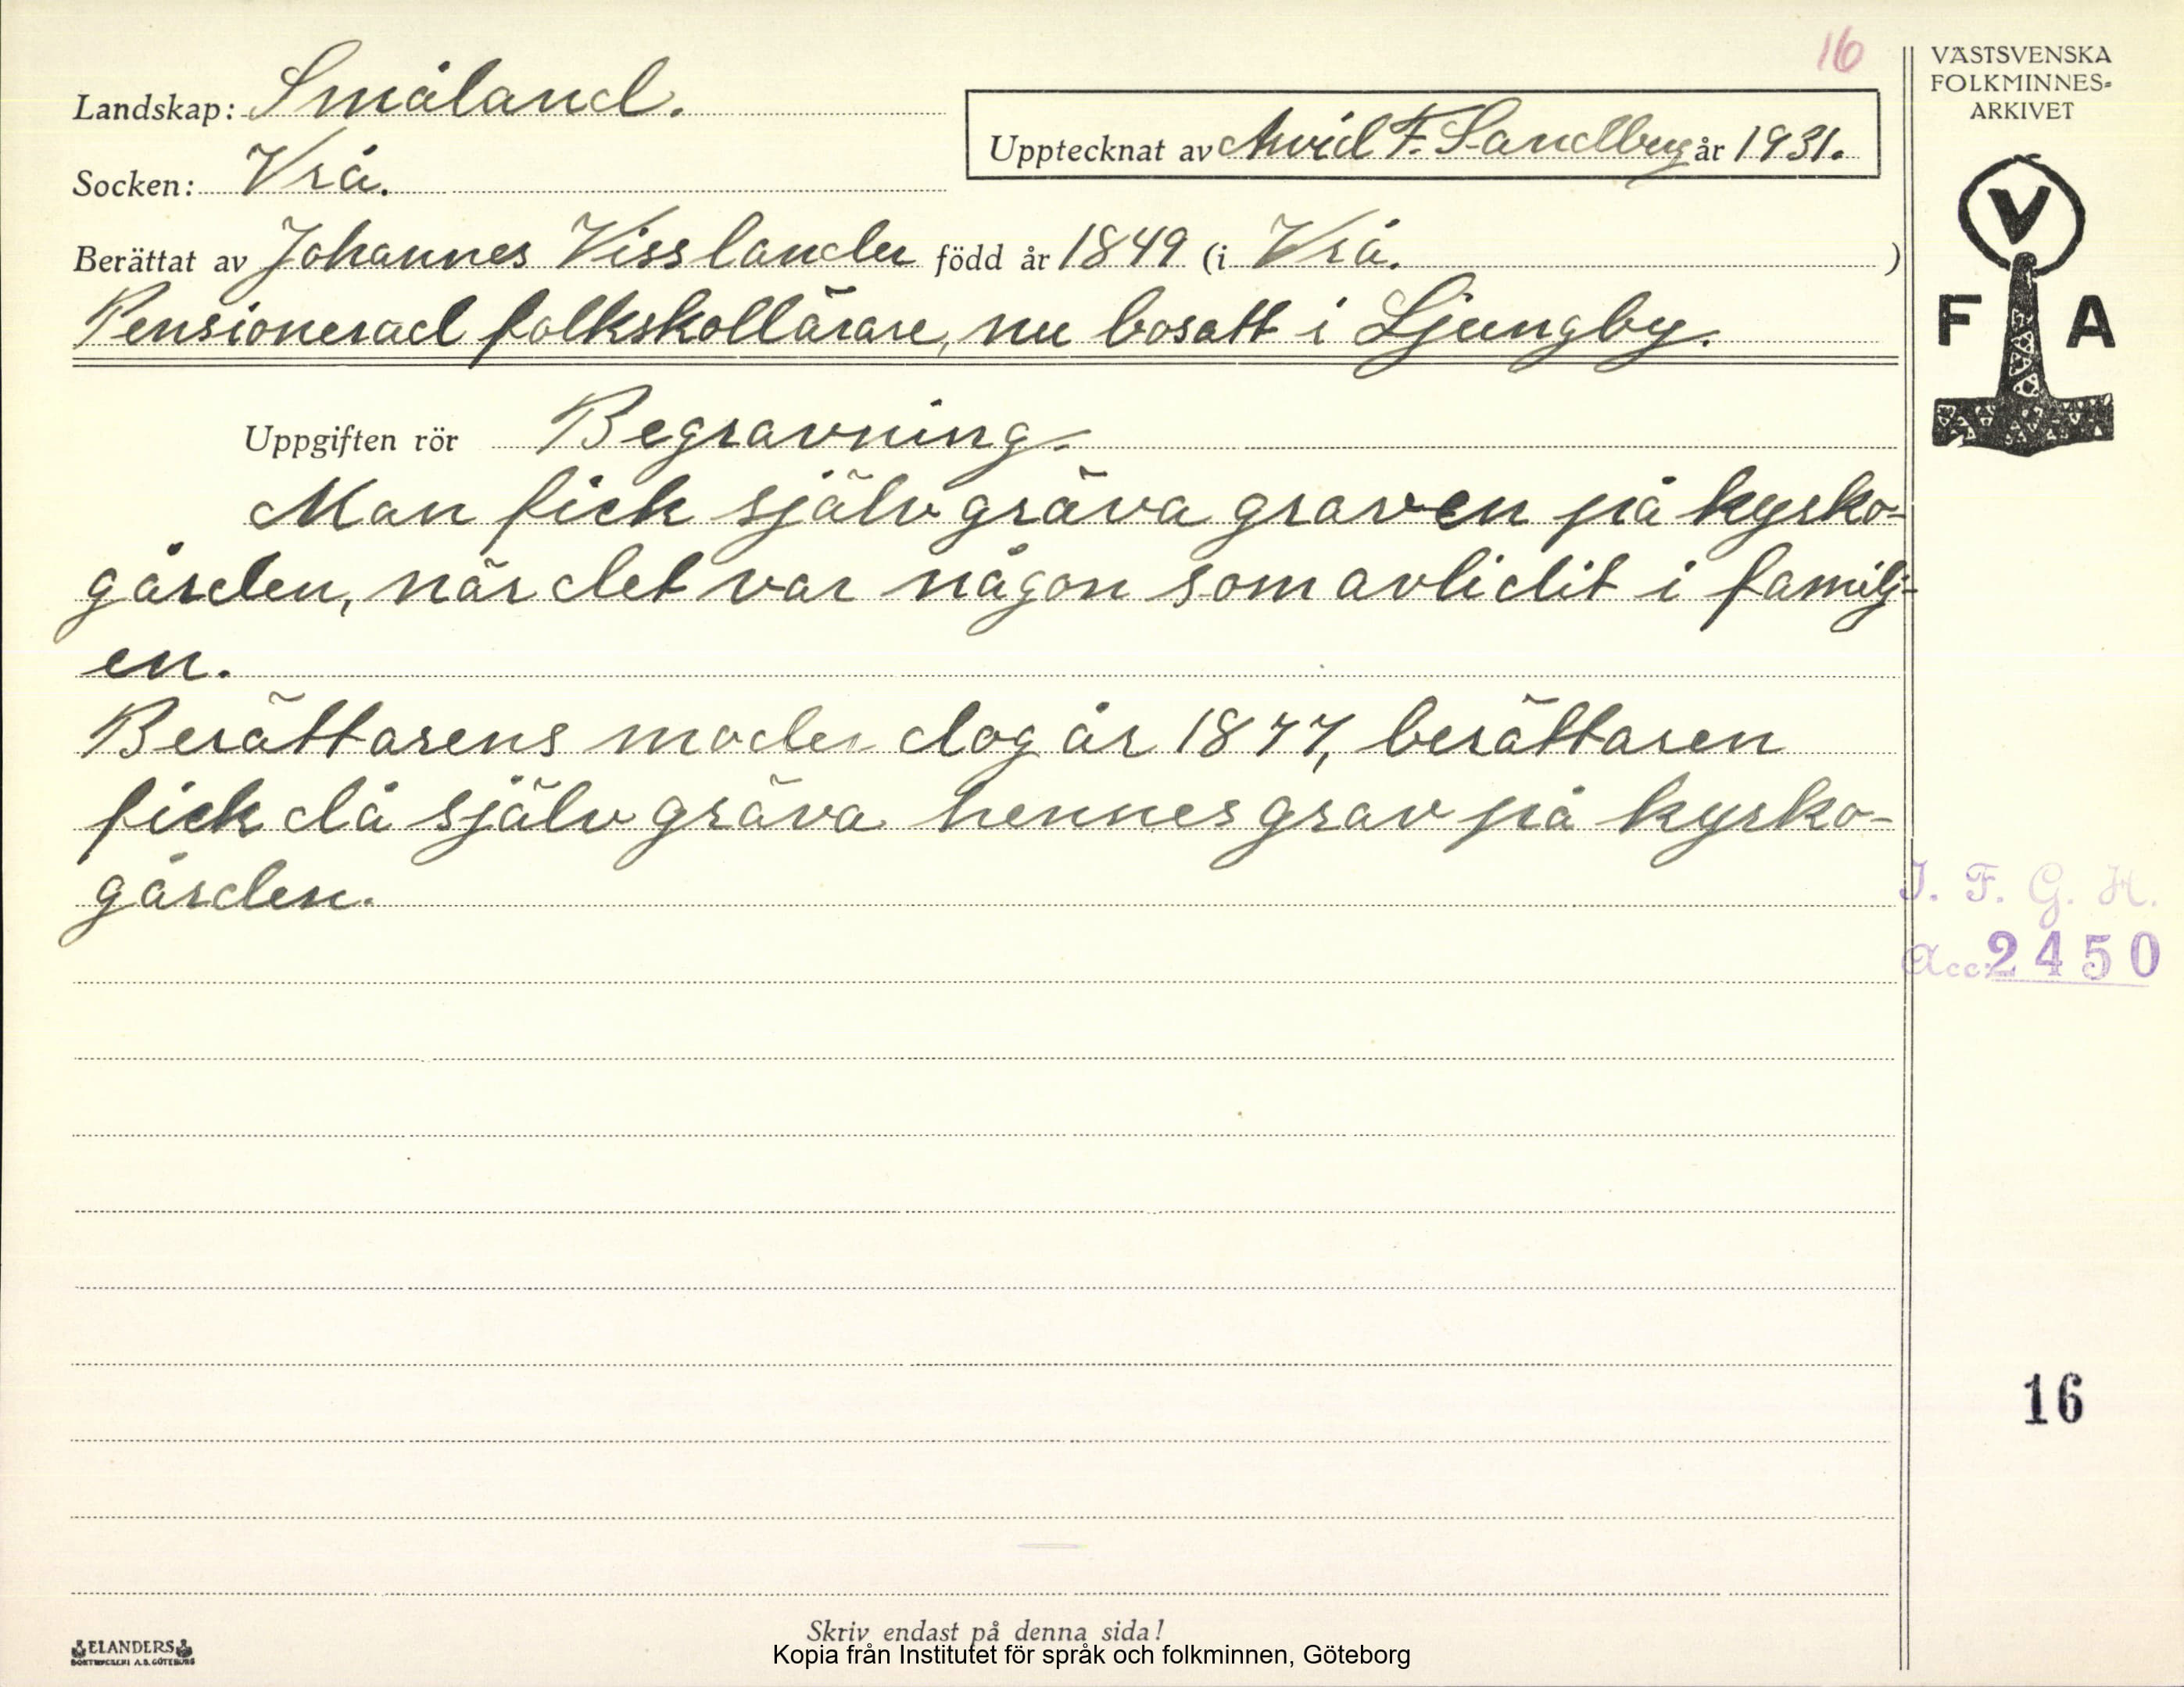 16
Landskap: Småland.
Upptecknat av Arvid F. Sandberg år 1931.
Socken: Vrå.
Berättat av Johannes Visslander född år 1849 (i Vrå. )
Pensionerad folkskollärare, nu bosatt i Ljungby.
Uppgiften rör Begravning.
Man fick själv gräva graven på kyrko-
gården, när det var någon som avlidit i familj-
en.
Berättarens moder dog år 1877, berättaren
fick då själv gräva hennes grav på kyrko-
gården.
VÄSTSVENSKA
FOLKMINNES-
ARKIVET
V
F A
I. F. G. H.
Acc: 2450
16
Skriv endast på denna sida!
ELANDERS
BOKTRYCKERI A.B. GÖTEBORG
Kopia från Institutet för språk och folkminnen, Göteborg